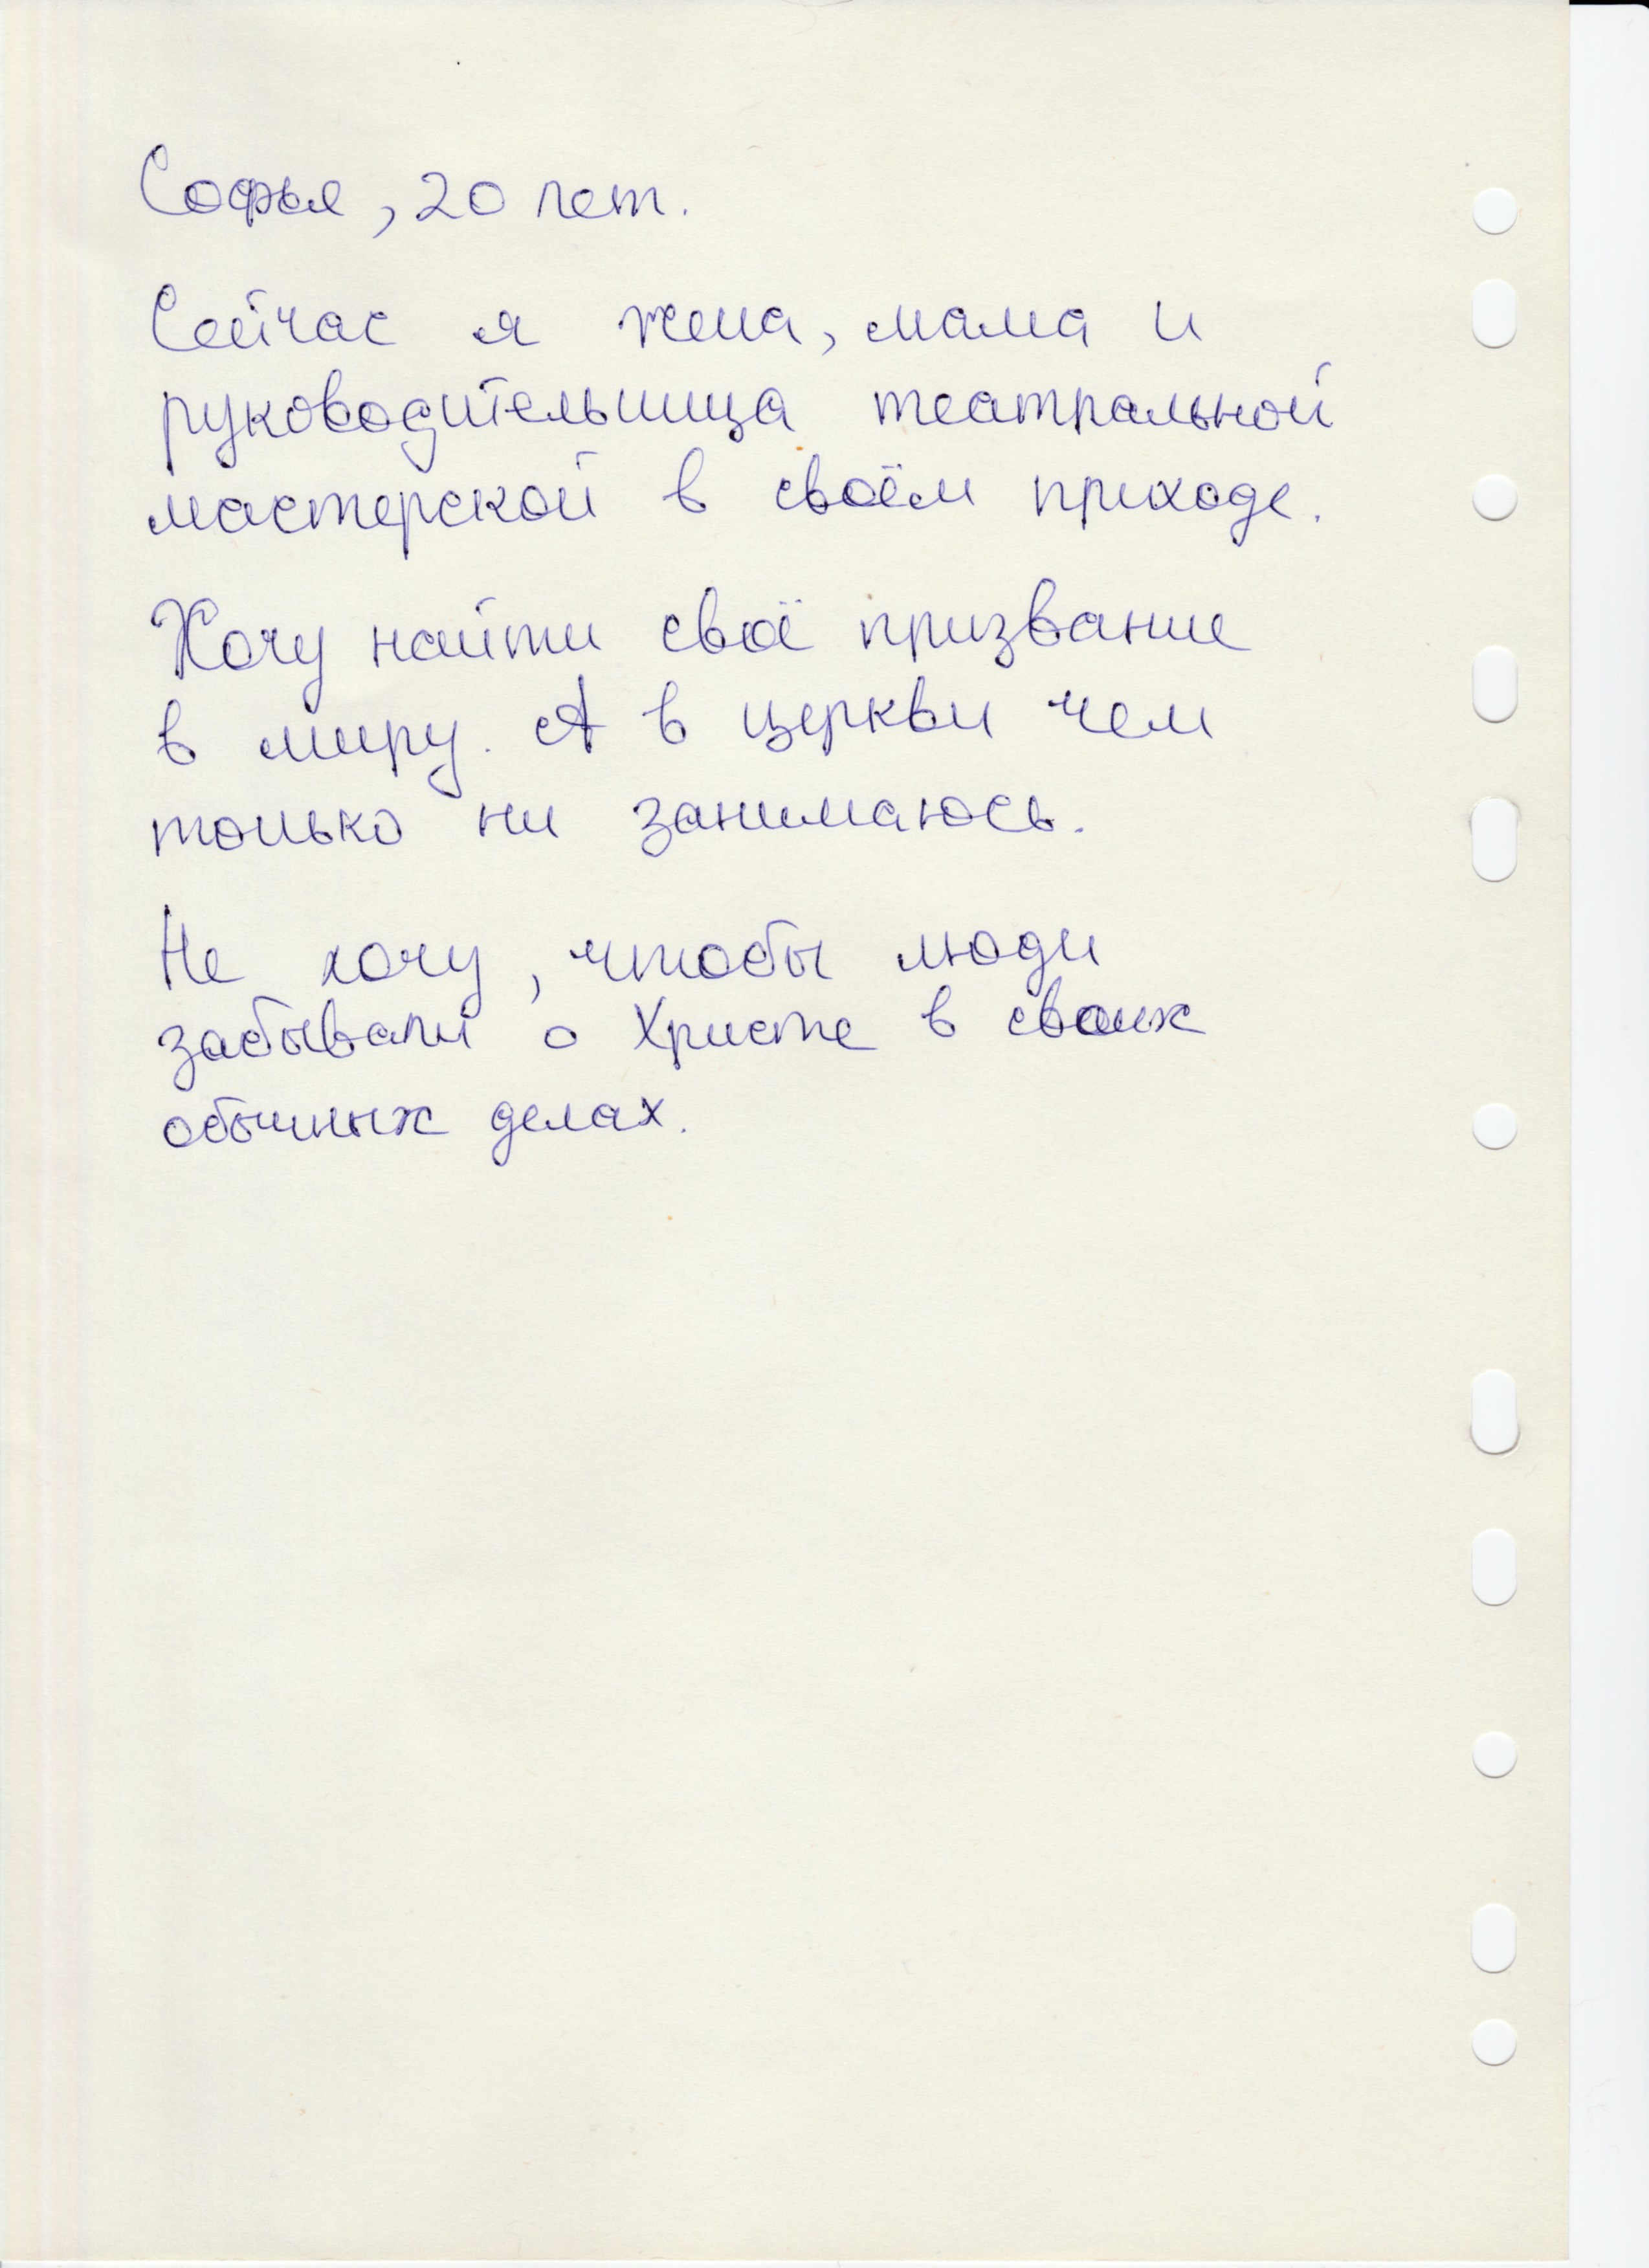 Софья, 20 лет.
Сейчас я жена, мама и
руководительница театральной
мастерской в своём приходе.
Хочу найти своё призвание
в миру. А в церкви чем
только ни занимаюсь.
Не хочу, чтобы люди
забывали о Христе в своих
обычных делах.